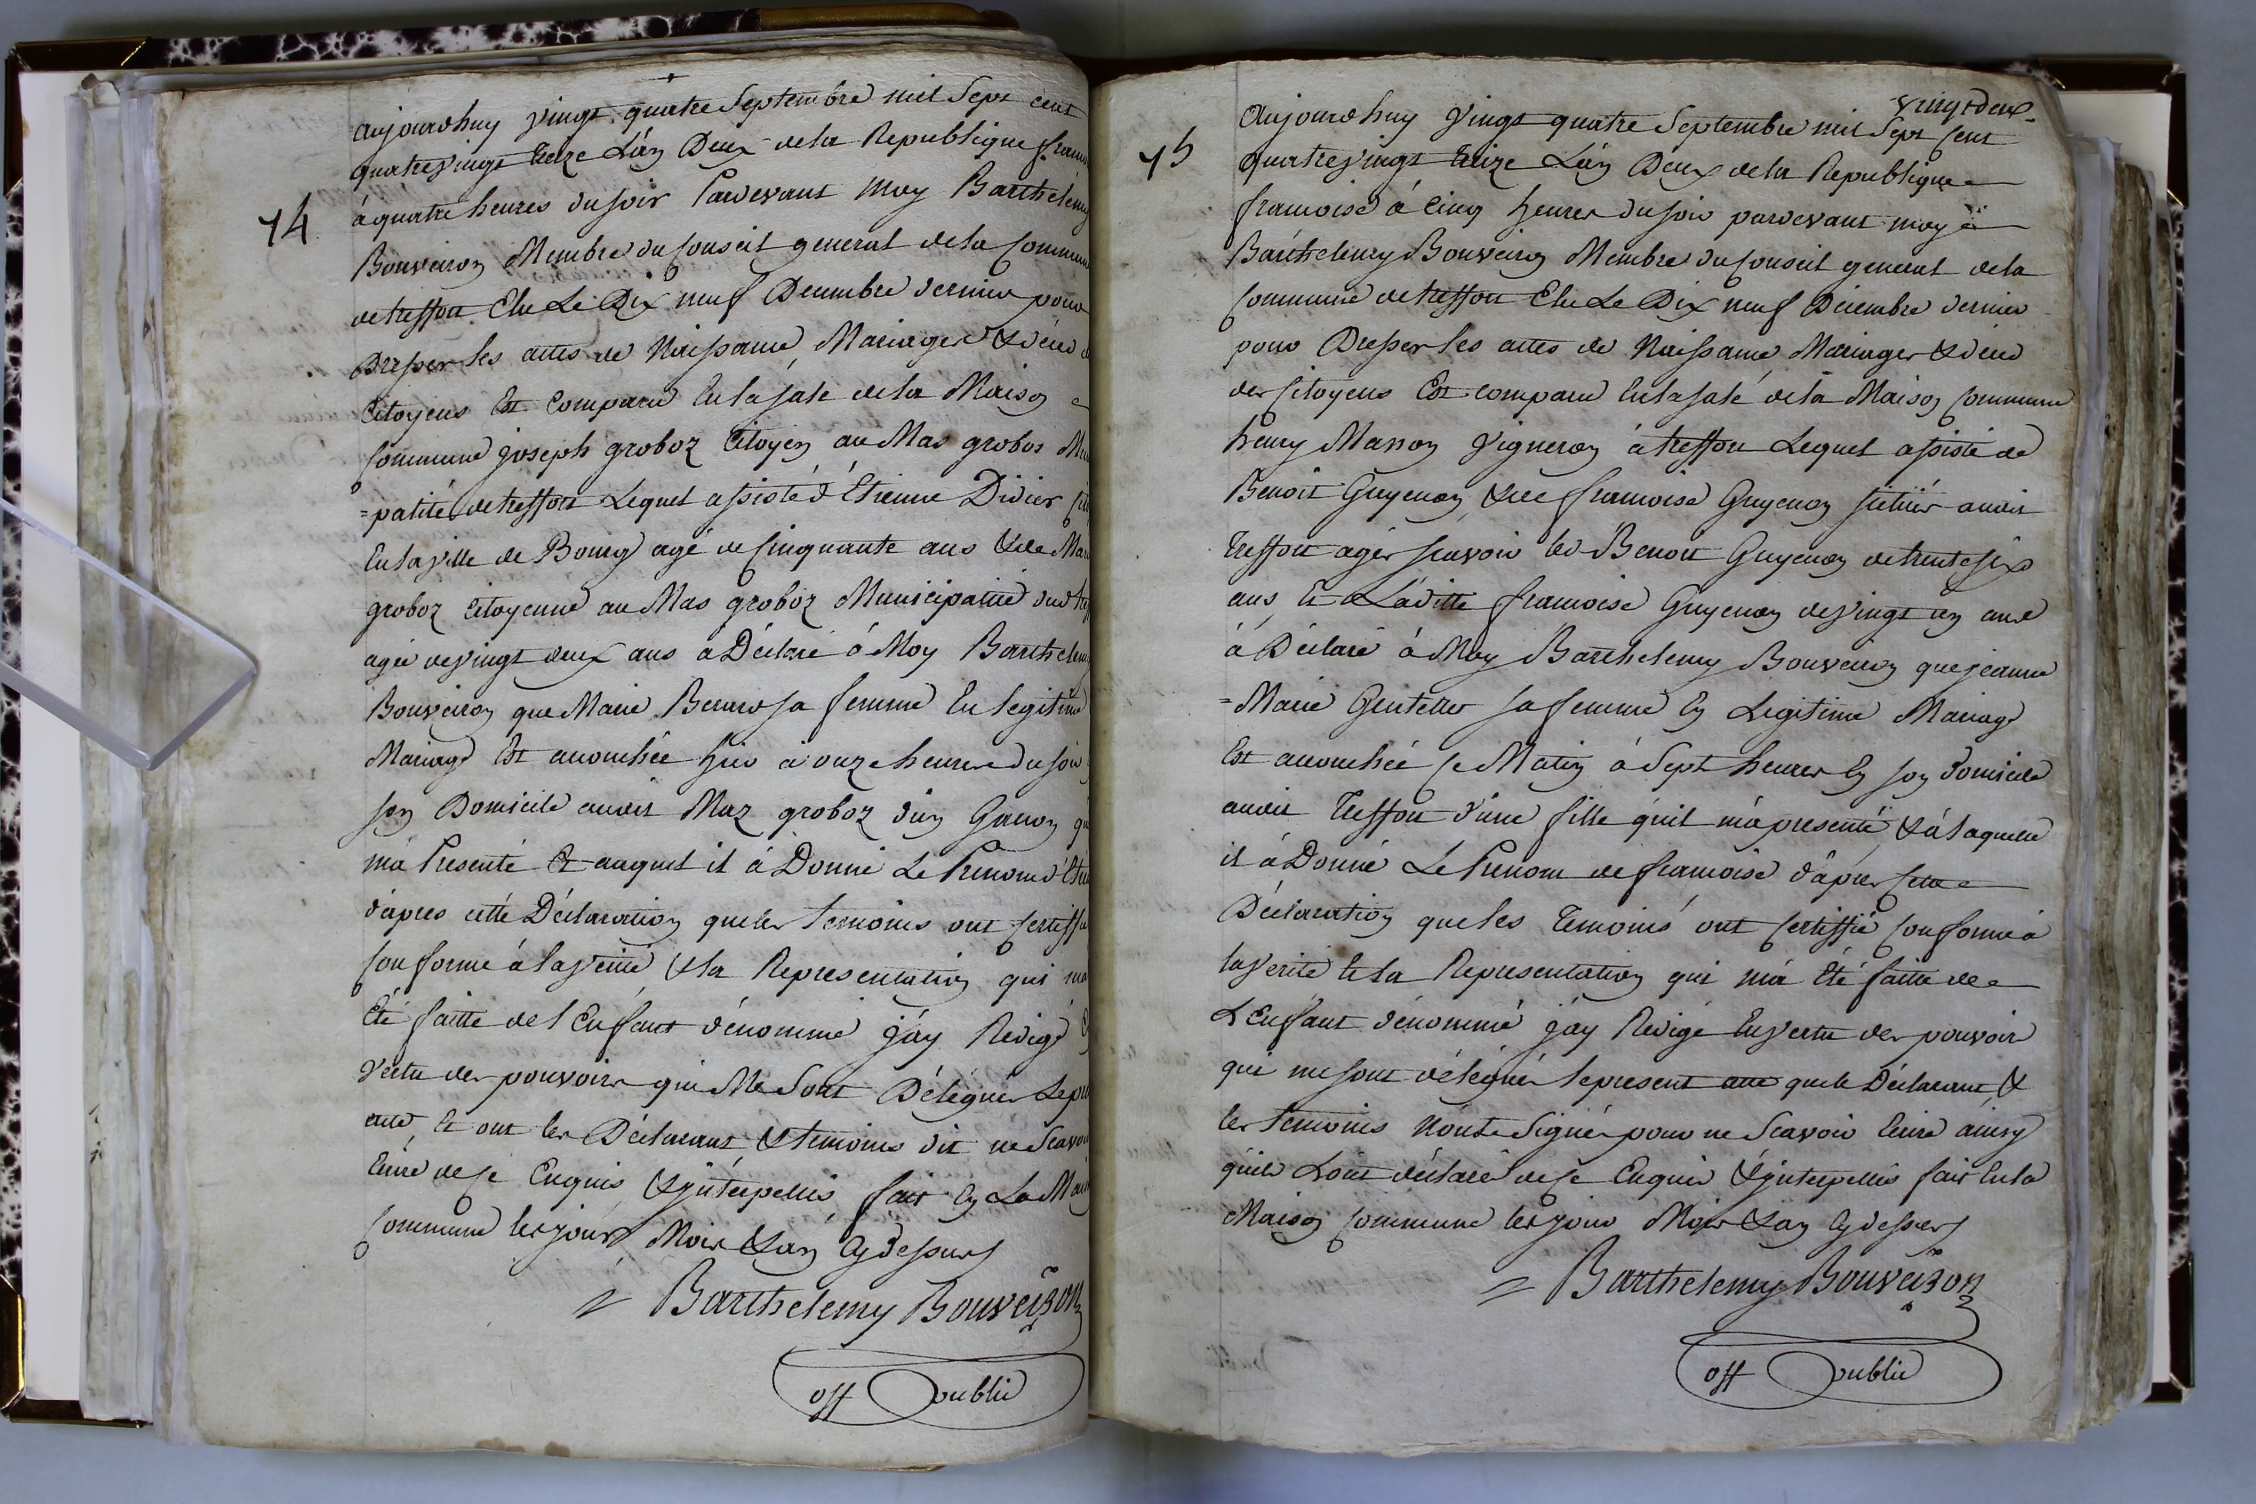 74
aujourdhuy vingt quatre Septembre mil Sept cent
quatrevingt treze L'án Deux de la Republique fran
á quatre heures du soir Pardevant moy Barthelemy
Bouveiron Membre du Conseil general de la Commune
de treffort Elu Le Dix neuf Decembre dernier pour
Dresser les actes de Naissance, Mariages & décés d
Citoyens Est Comparu En la sale de la Maison
Commune joseph groboz Citoyen au Mas groboz
=palité de treffort Lequel assisté d'Etienne Didier
En la ville de Bourg agé de Cinquante ans & de
groboz Citoyenne au Mas groboz Municipalité dud
agée de vingt deux ans a Déclaré á Moy Barthelemy
Bouveiron que Marie sa femme En Legitime
Mariage Est acouchée hier á onze heures du soir
son Domicile audit Maz groboz d'un Garcon
m'á Presenté Et auquel il á Donné Le Prenom d'
d'apres cette Déclaration que les temoins ont Certiffié
Conforme á la verité & la Representation qui m'a
Eté faitte de l'Enfant dénommé j'áy Redigé
vertu des pouvoirs qui Me Sont Délégués Le
acte Et ont les Déclarant & temoins dit ne Scavoir
Ecrire de Ce Enquis & jnterpellés fait En La
Commune les jour Mois & an Cy dessus
Barthelemy Bouveiron
off Public
vingt deux
75
Aujourdhuy Vingt quatre Septembre mil Sept Cent
quatrevingt treize L'án Deux de la Republique
francoise á Cinq heures du soir pardevant moy
Barthelemy Bouveiron Membre du Conseil general de la
Commune de treffort Elu Le Dix neuf Décembre dernier
pour Dresser les actes de Naissance, Mariages & décés
des Citoyens Est comparu En la sale de la Maison Commune
henry Masson Vigneron á treffort Lequel assisté de
Benoit Guyenon & de francoise Guyenon audit
Treffort agés scavoir led Benoit Guyenon de trente six
ans, Et Ladite francoise Guyenon de vingt un ans
á Déclaré á Moy Barthelemy Bouveiron que jeanne
=Marie sa femme En Legitime Mariage
Est acouchée Ce Matin á Sept heures En son domicile
audit Treffort d'une fille qu'il m'á presenté & á laquelle
il á Donné Le Prenom de francoise d'aprés Cette
Déclaration que les Temoins ont Certiffié Conforme á
la verité Et la Representation qui m'á Eté faitte de
L'Enfant dénommé j'áy Redigé En vertu des pouvoir
qui me sont délégués le present acte que le Déclarant &
les temoins n'ont Signé pour ne Scavoir Ecrire áinsy
qu'ils L'ont déclaré de Ce Enquis & jnterpellés fait En la
Maison Commune les jour Mois & an Cy dessus
Barthelemy Bouveiron
off Public